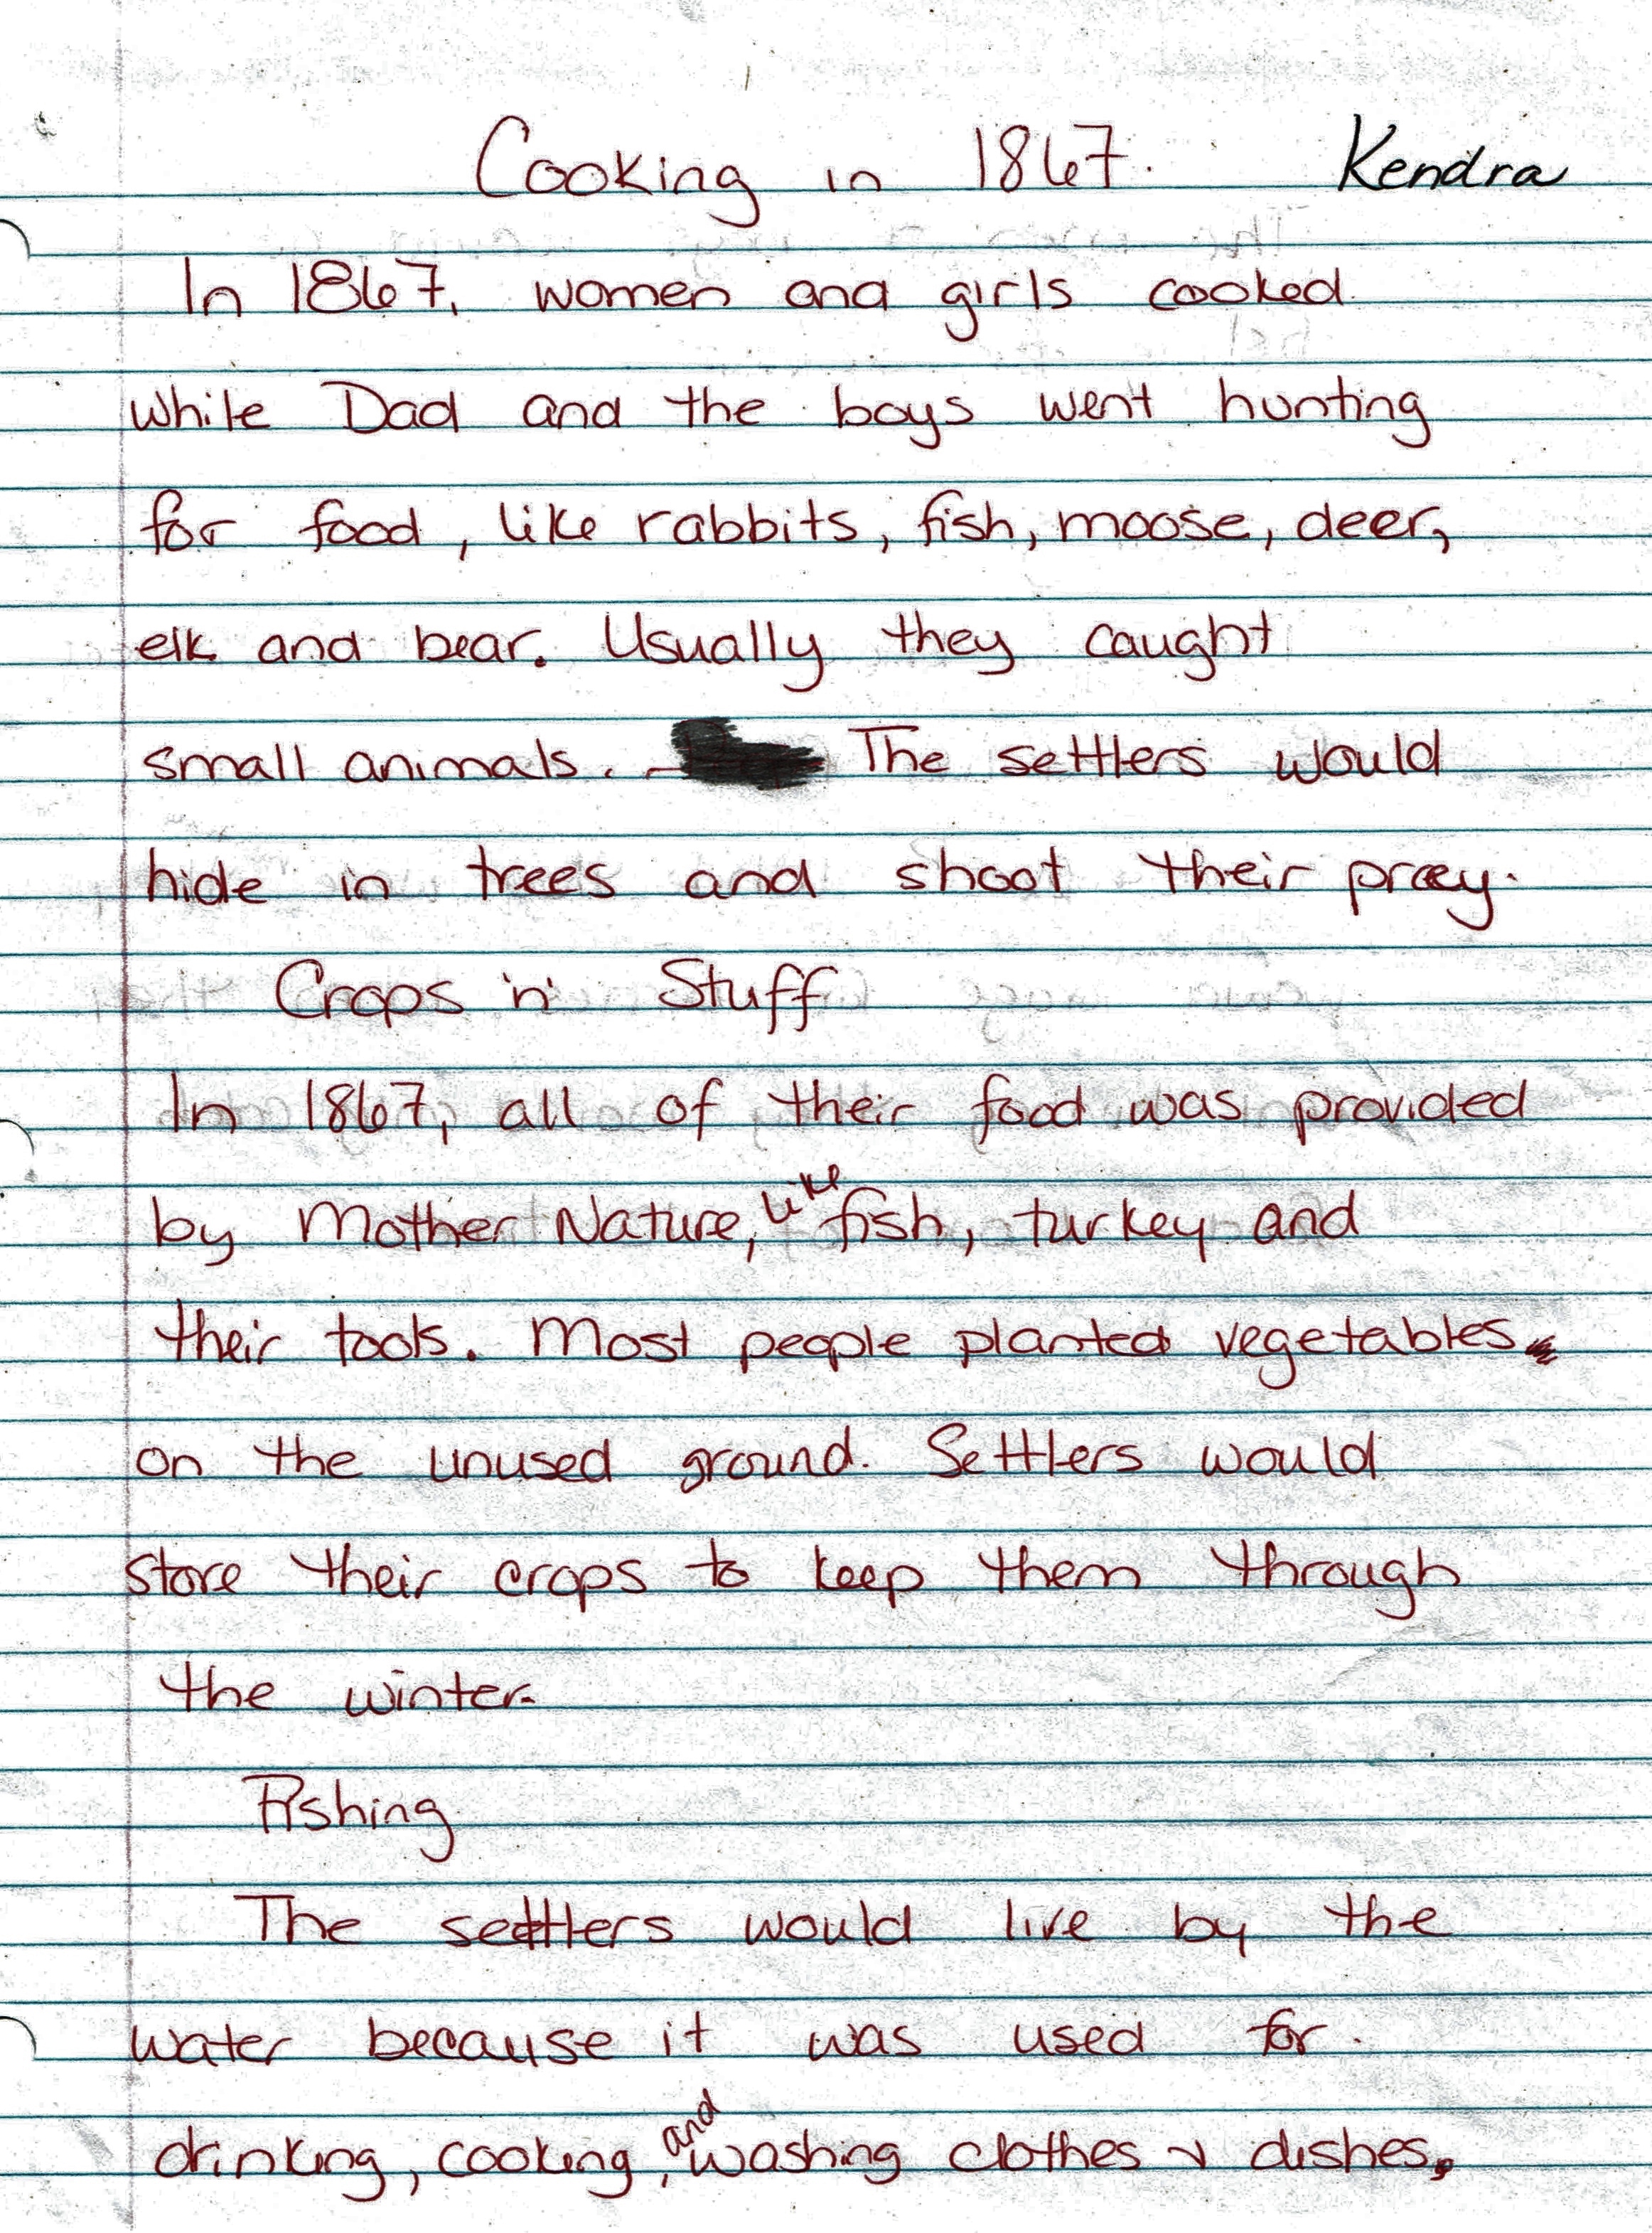 Cooking in 1867. Kendra
In 1867, women and girls cooked
while Dad and the boys went hunting
for food, like rabbits, fish, moose, deer,
elk and bear. Usually they caught
small animals. The settlers would
hide in trees and shoot their prey.
Crops 'n' Stuff
In 1867, all of their food was provided
by Mother Nature, like fish, turkey and
their tools. Most people planted vegetables
on the unused ground. Settlers would
store their crops to keep them through
the winter.
Fishing
The settlers would live by the
water because it was used for
drinking, cooking, and washing clothes & dishes.